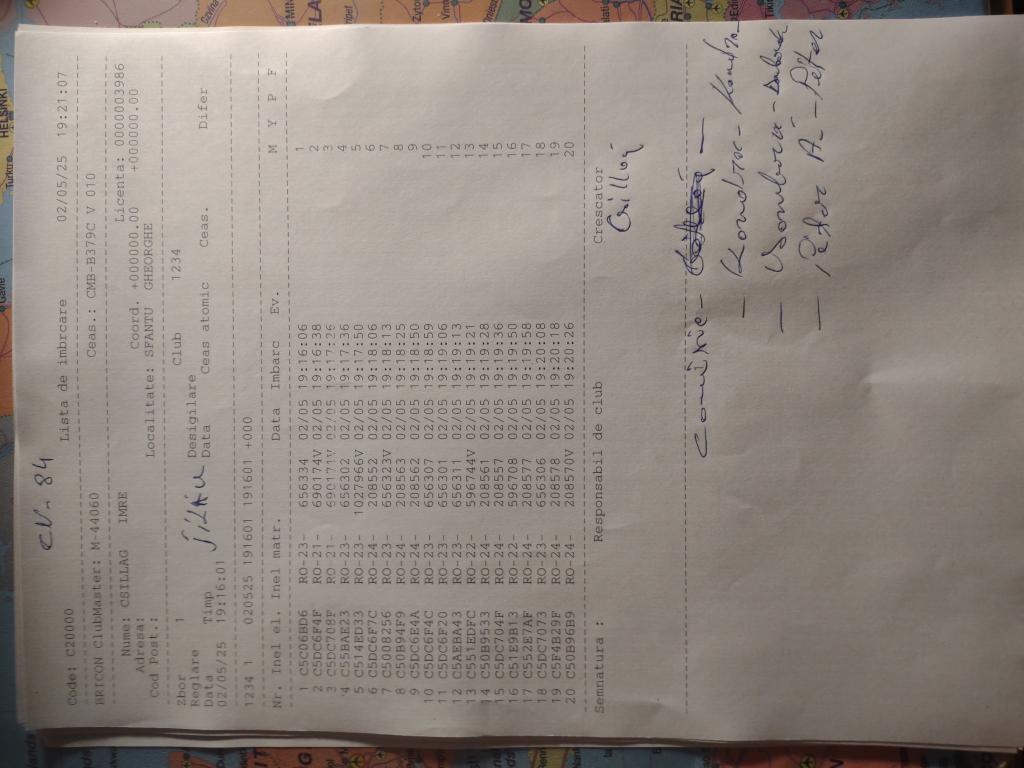 Cv. 84
Code: C20000 Lista de imbrcare 02/05/25 19:21:07
BRICON ClubMaster: M-44060 Ceas.: CMB-B379C V 010
Nume: CSILLAG IMRE Licenta: 0000003986
Adresa: Coord. +000000.00 +000000.00
Cod Post.: Localitate: SFANTU GHEORGHE
Zbor 1 Club 1234
Reglare Desigilare
Data Timp Data Ceas atomic Ceas. Difer
02/05/25 19:16:01
1234 1 020525 191601 191601 +000
Nr. Inel el. Inel matr. Data Imbarc Ev. M Y P F
1 C5C06BD6 RO-23- 656334 02/05 19:16:06 1
2 C5DC6F4F RO-21- 690174V 02/05 19:16:38 2
3 C5DC708F RO-21- 690171V 02/05 19:17:26 3
4 C55BAE23 RO-23- 656302 02/05 19:17:36 4
5 C514ED33 RO-23- 1027966V 02/05 19:17:50 5
6 C5DC6F7C RO-24- 208552 02/05 19:18:06 6
7 C5008256 RO-23- 656323V 02/05 19:18:13 7
8 C50B94F9 RO-24- 208563 02/05 19:18:25 8
9 C5DC6E4A RO-24- 208562 02/05 19:18:50 9
10 C5DC6F4C RO-23- 656307 02/05 19:18:59 10
11 C5DC6F20 RO-23- 656301 02/05 19:19:06 11
12 C5AEBA43 RO-23- 656311 02/05 19:19:13 12
13 C551EDFC RO-22- 596744V 02/05 19:19:21 13
14 C50B9533 RO-24- 208561 02/05 19:19:28 14
15 C5DC704F RO-24- 208557 02/05 19:19:36 15
16 C51E9B13 RO-22- 596708 02/05 19:19:50 16
17 C552E7AF RO-24- 208577 02/05 19:19:58 17
18 C5DC7073 RO-23- 656306 02/05 19:20:08 18
19 C5F4B29F RO-24- 208578 02/05 19:20:18 19
20 C50B96B9 RO-24- 208570V 02/05 19:20:26 20
Semnatura : Responsabil de club Crescator